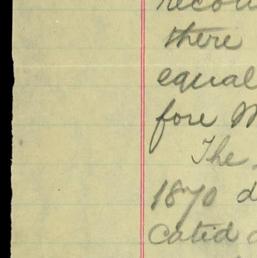 there
equal
fore
The
1870 d
cated